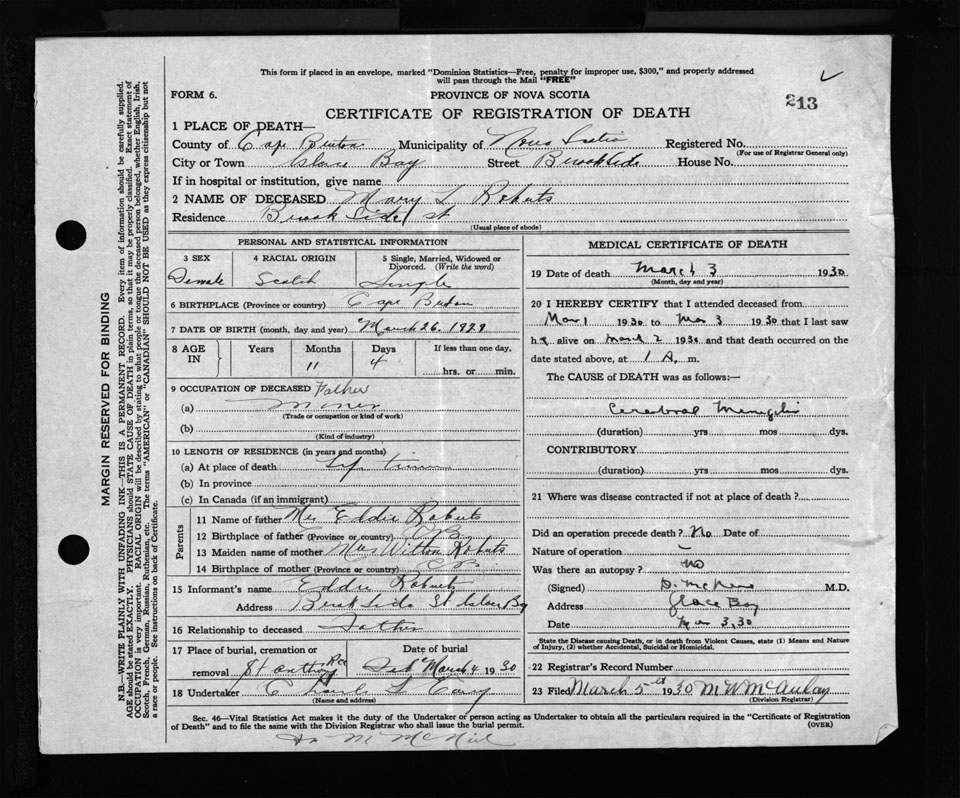 This form if placed in an envelope, marked "Dominion Statistics—Free, penalty for improper use, $300," and properly addressed
will pass through the Mail "FREE"
FORM 6.
PROVINCE OF NOVA SCOTIA
213
CERTIFICATE OF REGISTRATION OF DEATH
1 PLACE OF DEATH—
County of Cape Breton Municipality of Nova Scotia Registered No.
(For use of Registrar General only)
City or Town Glace Bay Street Brookside House No.
If in hospital or institution, give name
2 NAME OF DECEASED Mary L Roberts
Residence Brook Side St
(Usual place of abode)
PERSONAL AND STATISTICAL INFORMATION
3 SEX 4 RACIAL ORIGIN 5 Single, Married, Widowed or Divorced. (Write the word)
Female Scotch Single
6 BIRTHPLACE (Province or country) Cape Breton
7 DATE OF BIRTH (month, day and year) March 26. 1929
8 AGE IN Years Months Days If less than one day,
11 4 hrs. or min.
9 OCCUPATION OF DECEASED Father
(a) Miner
(Trade or occupation or kind of work)
(b)
(Kind of industry)
10 LENGTH OF RESIDENCE (in years and months)
(a) At place of death Life time
(b) In province
(c) In Canada (if an immigrant)
Parents
11 Name of father Mr Eddie Roberts
12 Birthplace of father (Province or country) C.B.
13 Maiden name of mother Roberts
14 Birthplace of mother (Province or country) C.B.
15 Informant's name Eddie Roberts
Address Brook Side St Glace Bay
16 Relationship to deceased Father
17 Place of burial, cremation or removal St Anthony Date of burial March 4 1930
18 Undertaker
(Name and address)
MEDICAL CERTIFICATE OF DEATH
19 Date of death March 3 1930
(Month, day and year)
20 I HEREBY CERTIFY that I attended deceased from
Mar 1 1930 to Mar 3 1930 that I last saw
h alive on March 2 1930 and that death occurred on the
date stated above, at 1 A. m.
The CAUSE of DEATH was as follows:—
Cerebral Meningitis
(duration) yrs mos dys.
CONTRIBUTORY
(duration) yrs mos dys.
21 Where was disease contracted if not at place of death?
Did an operation precede death? No Date of
Nature of operation —
Was there an autopsy? No
(Signed) M.D.
Address Glace Bay
Date Mar 3, 30
State the Disease causing Death, or in death from Violent Causes, state (1) Means and Nature
of Injury, (2) whether Accidental, Suicidal or Homicidal.
22 Registrar's Record Number
23 Filed March 5th 1930 M W McAulay
(Division Registrar)
Sec. 46—Vital Statistics Act makes it the duty of the Undertaker or person acting as Undertaker to obtain all the particulars required in the "Certificate of Registration
of Death" and to file the same with the Division Registrar who shall issue the burial permit.
(OVER)
McNeil
MARGIN RESERVED FOR BINDING
N.B.—WRITE PLAINLY WITH UNFADING INK—THIS IS A PERMANENT RECORD. Every item of information should be carefully supplied.
AGE should be stated EXACTLY. PHYSICIANS should STATE CAUSE OF DEATH in plain terms, so that it may be properly classified. Exact statement of
OCCUPATION is very important. RACIAL ORIGIN will be described by stating to what people or tongue the deceased person belonged, whether English, Irish,
Scotch, French, German, Russian, Ruthenian, etc. The terms "AMERICAN" or "CANADIAN" SHOULD NOT BE USED as they express citizenship but not
a race or people. See instructions on back of Certificate.